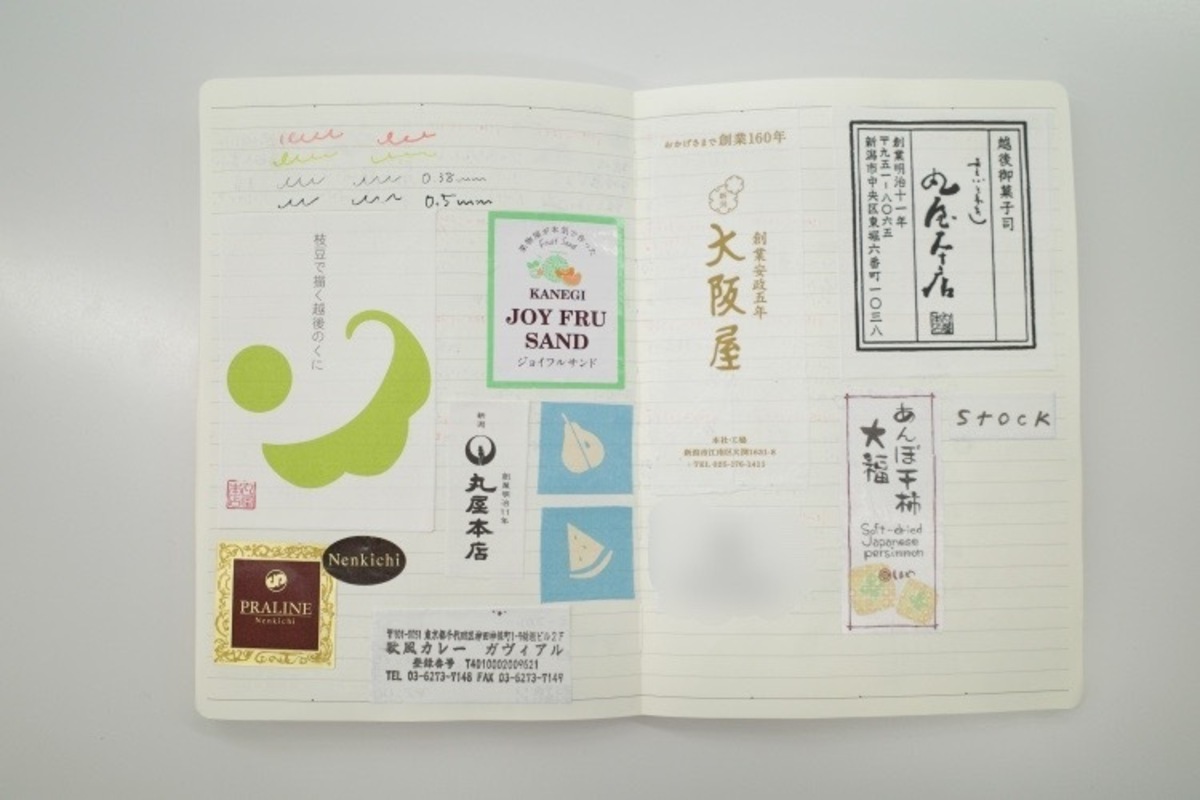 0.38mm
0.5mm
枝豆で描く越後のくに
果物屋が本気で作った
Fruit Sand
KANEGI
JOY FRU
SAND
ジョイフルサンド
新潟
丸屋本店
創業明治11年
PRALINE
Nenkichi
Nenkichi
〒101-0051 東京都千代田区神田神保町1-9稲垣ビル2F
欧風カレー ガヴィアル
登録番号 T4010002009521
TEL 03-6273-7148 FAX 03-6273-7149
おかげさまで創業160年
新潟
大阪屋
創業安政五年
本社・工場
新潟市江南区大渕1631-8
TEL 025-276-1411
越後御菓子司
丸屋本店
創業明治十一年
〒九五一-八〇六五
新潟市中央区東堀六番町一〇三八
STOCK
あんぽ干柿
大福
Soft-dried
Japanese
persimmon